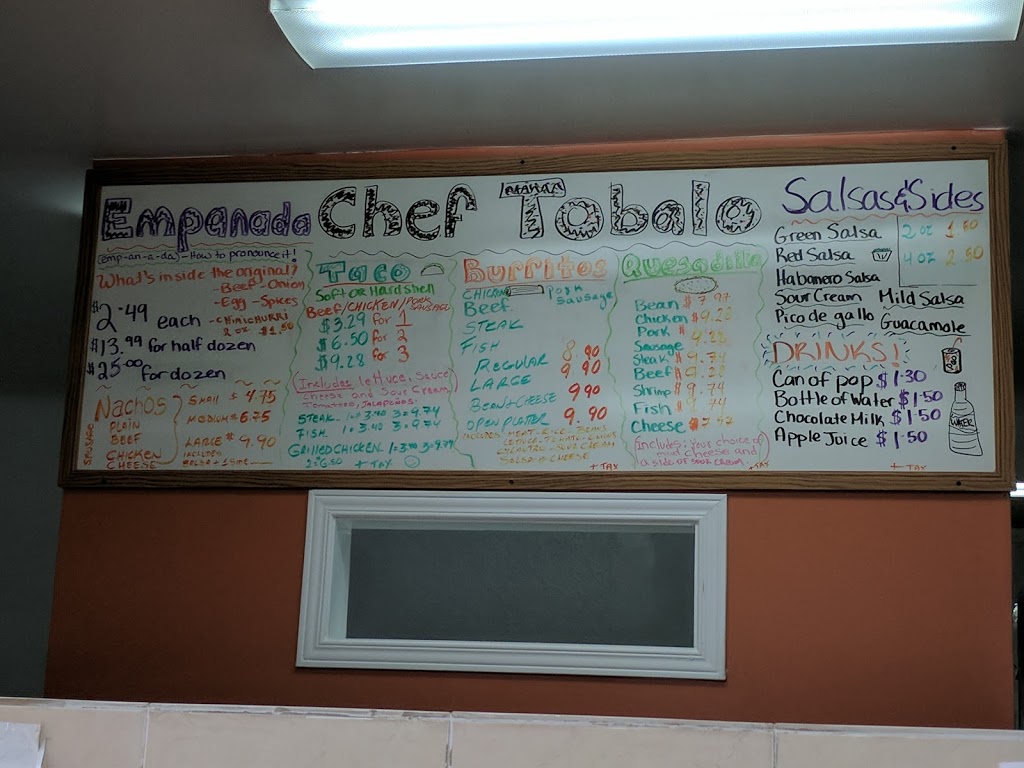 Empanada
(emp-an-a-da)-How to pronounce it!
What's inside the original?
- Beef - Onion
- Egg - Spices
- CHIMICHURRI
2 oz $1.50
$2.49 each
$13.99 for half dozen
$25.00 for dozen
Nachos
PLAIN
BEEF
CHICKEN
CHEESE
SMALL $4.75
MEDIUM $6.75
LARGE $9.90
INCLUDES
Chef Tobalo
Taco
Soft OR Hard shell
Beef/CHICKEN/PORK SAUSAGE
$3.29 for 1
$6.50 for 2
$9.28 for 3
(Includes lettuce, sauce
cheese and sour cream
Tomatoes, JALAPEÑOS.
STEAK 1=3.40 3=9.74
FISH 1=3.40 3=9.74
Grilled CHICKEN 1=3.40 3=9.79
2=6.50 + TAX
Burritos
CHICKEN
Pork Sausage
Beef
STEAK
FISH
REGULAR 8.90
LARGE 9.90
BEAN+CHEESE 9.90
OPEN PLATTER 9.90
INCLUDES MEAT - RICE - BEANS
SALSA & CHEESE
+ TAX
Quesadilla
Bean $7.97
Chicken $9.23
Pork Sausage
Steak $9.74
Beef $9.23
Shrimp $9.74
Fish $9.74
Cheese $7.97
Includes: your choice of
meat cheese and
a side of sour cream
+TAX
Salsas & Sides
Green Salsa
Red Salsa
Habanero Salsa
2 oz 1.50
4 oz 2.50
Sour Cream Mild Salsa
Pico de gallo Guacamole
DRINKS!
Can of pop $1.30
Bottle of Water $1.50
Chocolate Milk $1.50
Apple Juice $1.50
WATER
+ TAX